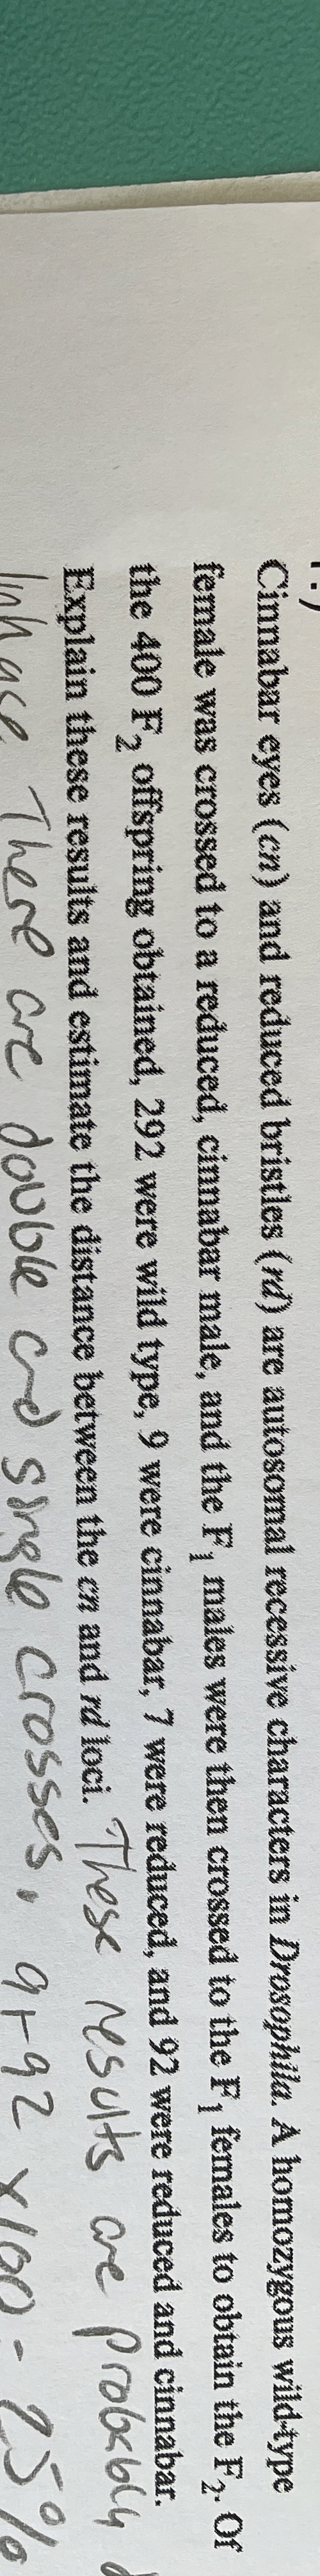 Cinnabar eyes (cn) and reduced bristles (rd) are autosomal recessive characters in Drosophila. A homozygous wild-type
female was crossed to a reduced, cinnabar male, and the F₁ males were then crossed to the F₁ females to obtain the F₂. Of
the 400 F₂ offspring obtained, 292 were wild type, 9 were cinnabar, 7 were reduced, and 92 were reduced and cinnabar.
Explain these results and estimate the distance between the cn and rd loci. These results are probably
There are double and single crosses, 9+92 x100 = 25%